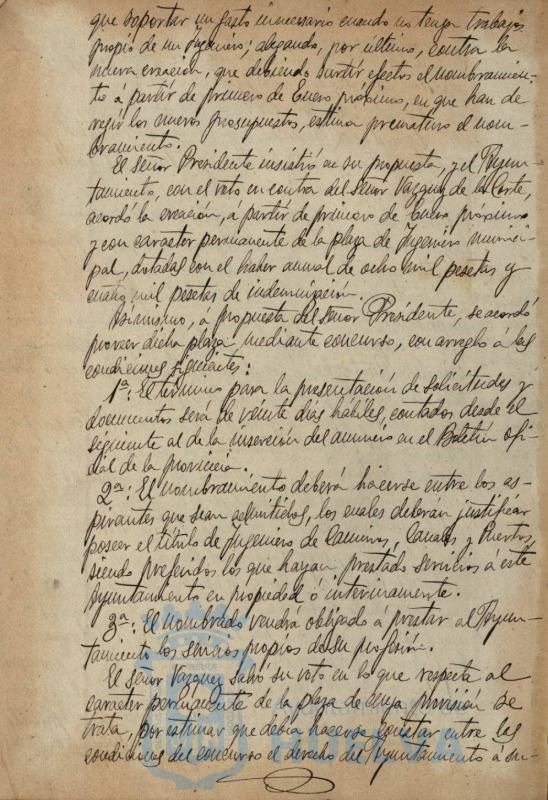 que soportar un gasto innecesario cuando no tenga trabajos
propio de un Ingeniero; alegando, por último, contra la
nueva creación, que debiendo surtir efectos el nombramien-
to á partir de primero de Enero próximo, en que han de
regir los nuevos presupuestos, estima prematuro el nom-
bramiento.
El Señor Presidente insistió en su propuesta, y el Ayun-
tamiento, con el voto en contra del señor Vazquez de la Corte,
acordó la creación, á partir de primero de Enero próximo
y con caracter permanente de la plaza de Ingeniero munici-
pal, dotadas con el haber anual de ocho mil pesetas y
cuatro mil pesetas de indemnización.
Asimismo, á propuesta del señor Presidente, se acordó
proveer dicha plaza mediante concurso, con arreglo á las
condiciones siguientes:
1ª: El término para la presentación de solicitudes y
documentos será de veinte dias hábiles, contados desde el
siguiente al de la inserción del anuncio en el Boletín ofi-
cial de la provincia.
2ª: El nombramiento deberá hacerse entre los as-
pirantes que sean admitidos, los cuales deberán justificar
poseer el título de Ingeniero de Caminos, Canales y Puertos,
siendo preferidos los que hayan prestado servicios á este
Ayuntamiento en propiedad ó interinamente.
3ª: El nombrado vendrá obligado á prestar al Ayun-
tamiento los servicios propios de su profesión.
El Señor Vazquez salvó su voto en lo que respecta al
caracter permanente de la plaza de cuya provisión se
trata, por estimar que debía hacerse constar entre las
condiciones del concurso el derecho del Ayuntamiento á su-